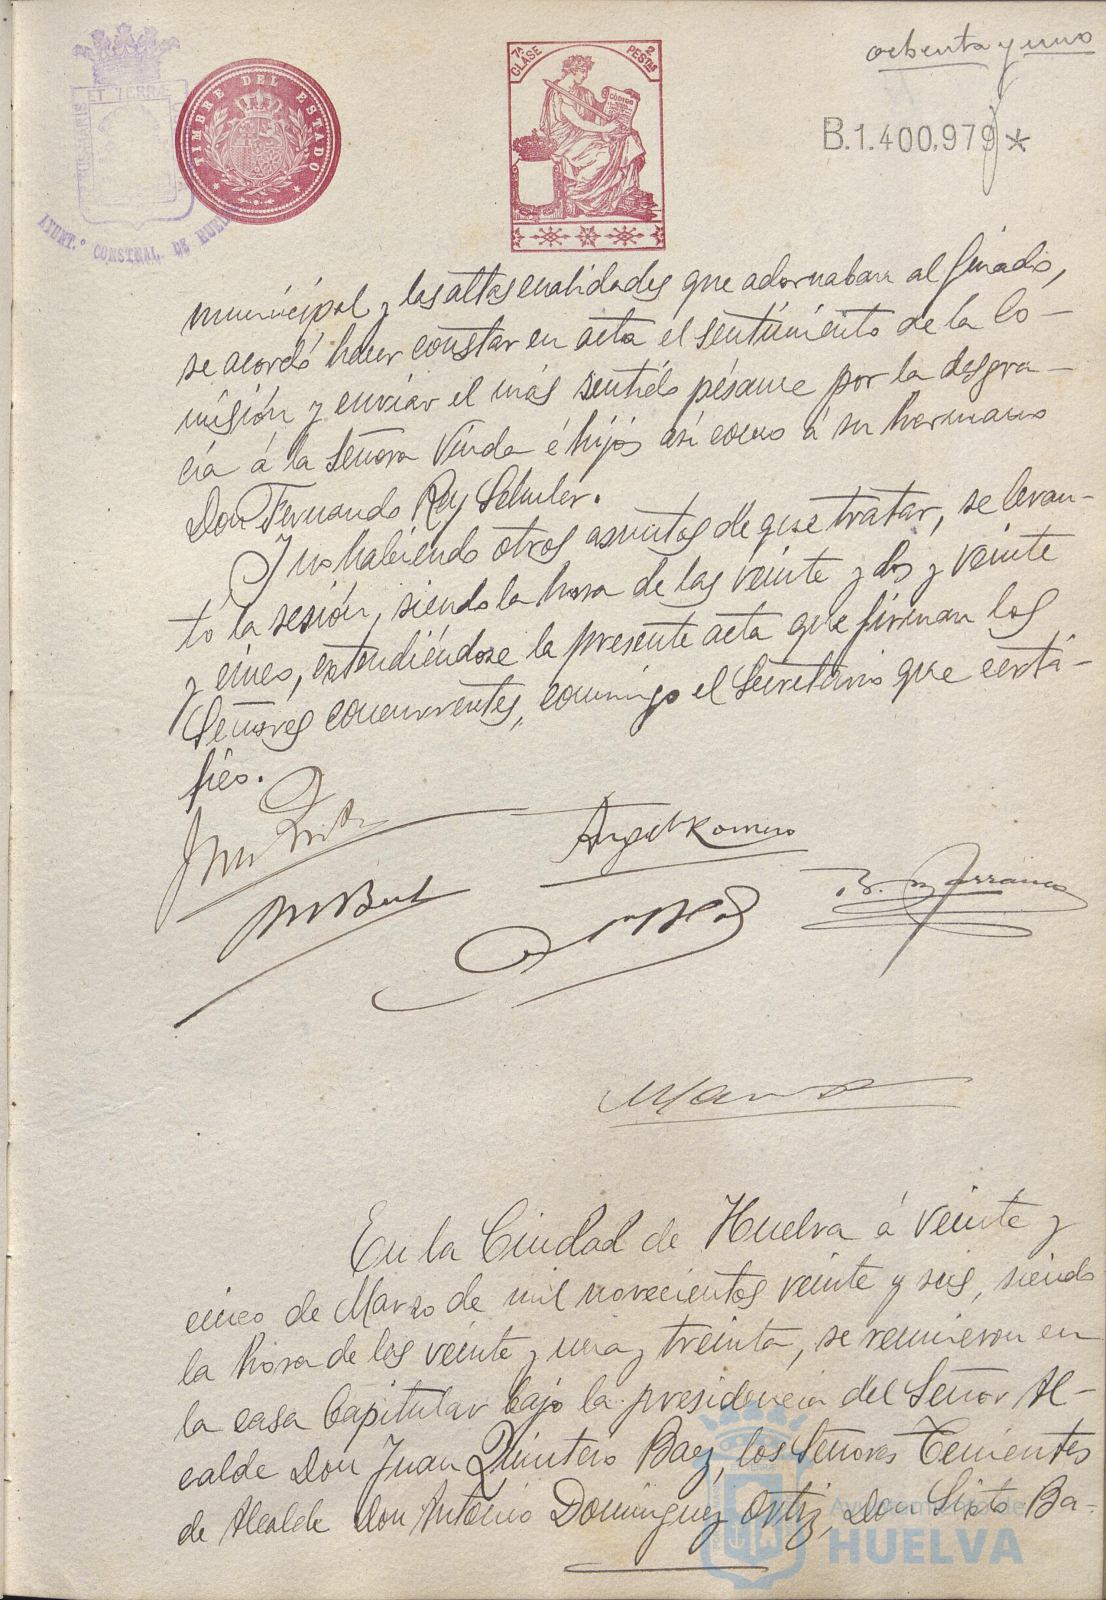 ochenta y uno
7ª CLASE
2 PESTAS
CÓDIGO
TIMBRE DEL ESTADO
B.1.400.979 *
AYUNT.º CONSTNAL. DE HUELVA
municipal y las altas cualidades que adornaban al finado,
se acordó hacer constar en acta el sentimiento de la Co-
misión y enviar el más sentido pésame por la desgra-
cia á la Señora Viuda é hijos así como á su hermano
Don Fernando Rey Schuler.
Y no habiendo otros asuntos de que tratar, se levan-
tó la sesión, siendo la hora de las veinte y dos y veinte
y cinco, extendiéndose la presente acta que firman los
Señores concurrentes, conmigo el Secretario que certi-
fico.
Angel Romero
En la Ciudad de Huelva á veinte y
cinco de Marzo de mil novecientos veinte y seis, siendo
la hora de las veinte y una y treinta, se reunieron en
la casa Capitular bajo la presidencia del Señor Al-
calde Don Juan Quintero Baez, los Señores Tenientes
de Alcalde Don Antonio Dominguez Ortiz, Don Sixto Ba-
Ayuntamiento de
HUELVA